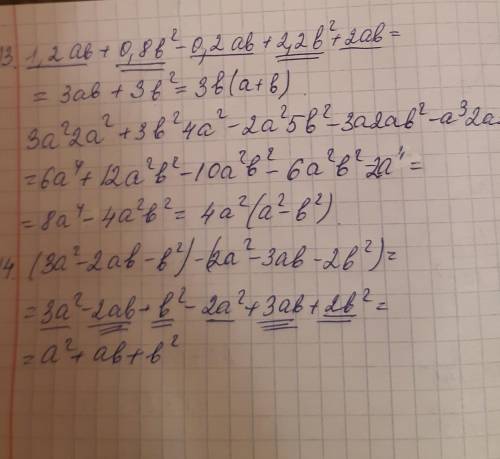 13. 1,2ab + 0,8b² - 0,2ab + 2,2b² + 2ab =
= 3ab + 3b² = 3b(a+b)
3a²2a² + 3b²4a² - 2a²5b² - 3a2ab² - a³2a
= 6a⁴ + 12a²b² - 10a²b² - 6a²b² - 2a⁴ =
= 8a⁴ - 4a²b² = 4a²(a² - b²)
14. (3a² - 2ab - b²) - (2a² - 3ab - 2b²) =
= 3a² - 2ab - b² - 2a² + 3ab + 2b² =
= a² + ab + b²